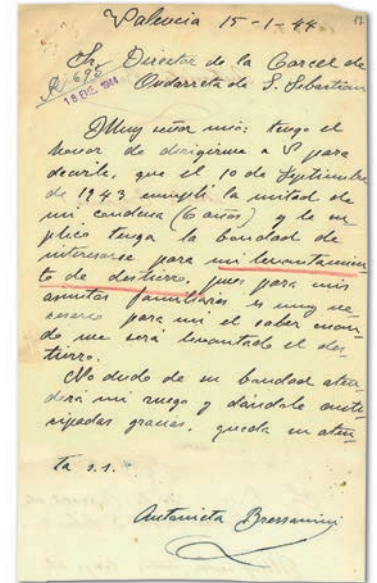 Valencia 15-1-44
12
Sr. Director de la Carcel de
Ondarreta de S. Sebastian
R/ 695
18 ENE. 1944
Muy señor mio: tengo el
honor de dirigirme a V para
decirle, que el 10 de Septiembre
de 1943 cumplí la mitad de
mi condena (6 años) y le su
plico tenga la bondad de
interesarse para mi levantamien
to de destierro, pues para mis
asuntos familiares es muy ne
cesario para mi el saber cuan
do me será levantado el des
tierro.
No dudo de su bondad aten
derá mi ruego y dándole anti
cipadas gracias, queda su aten
ta s.s.
Antonieta Bressanini